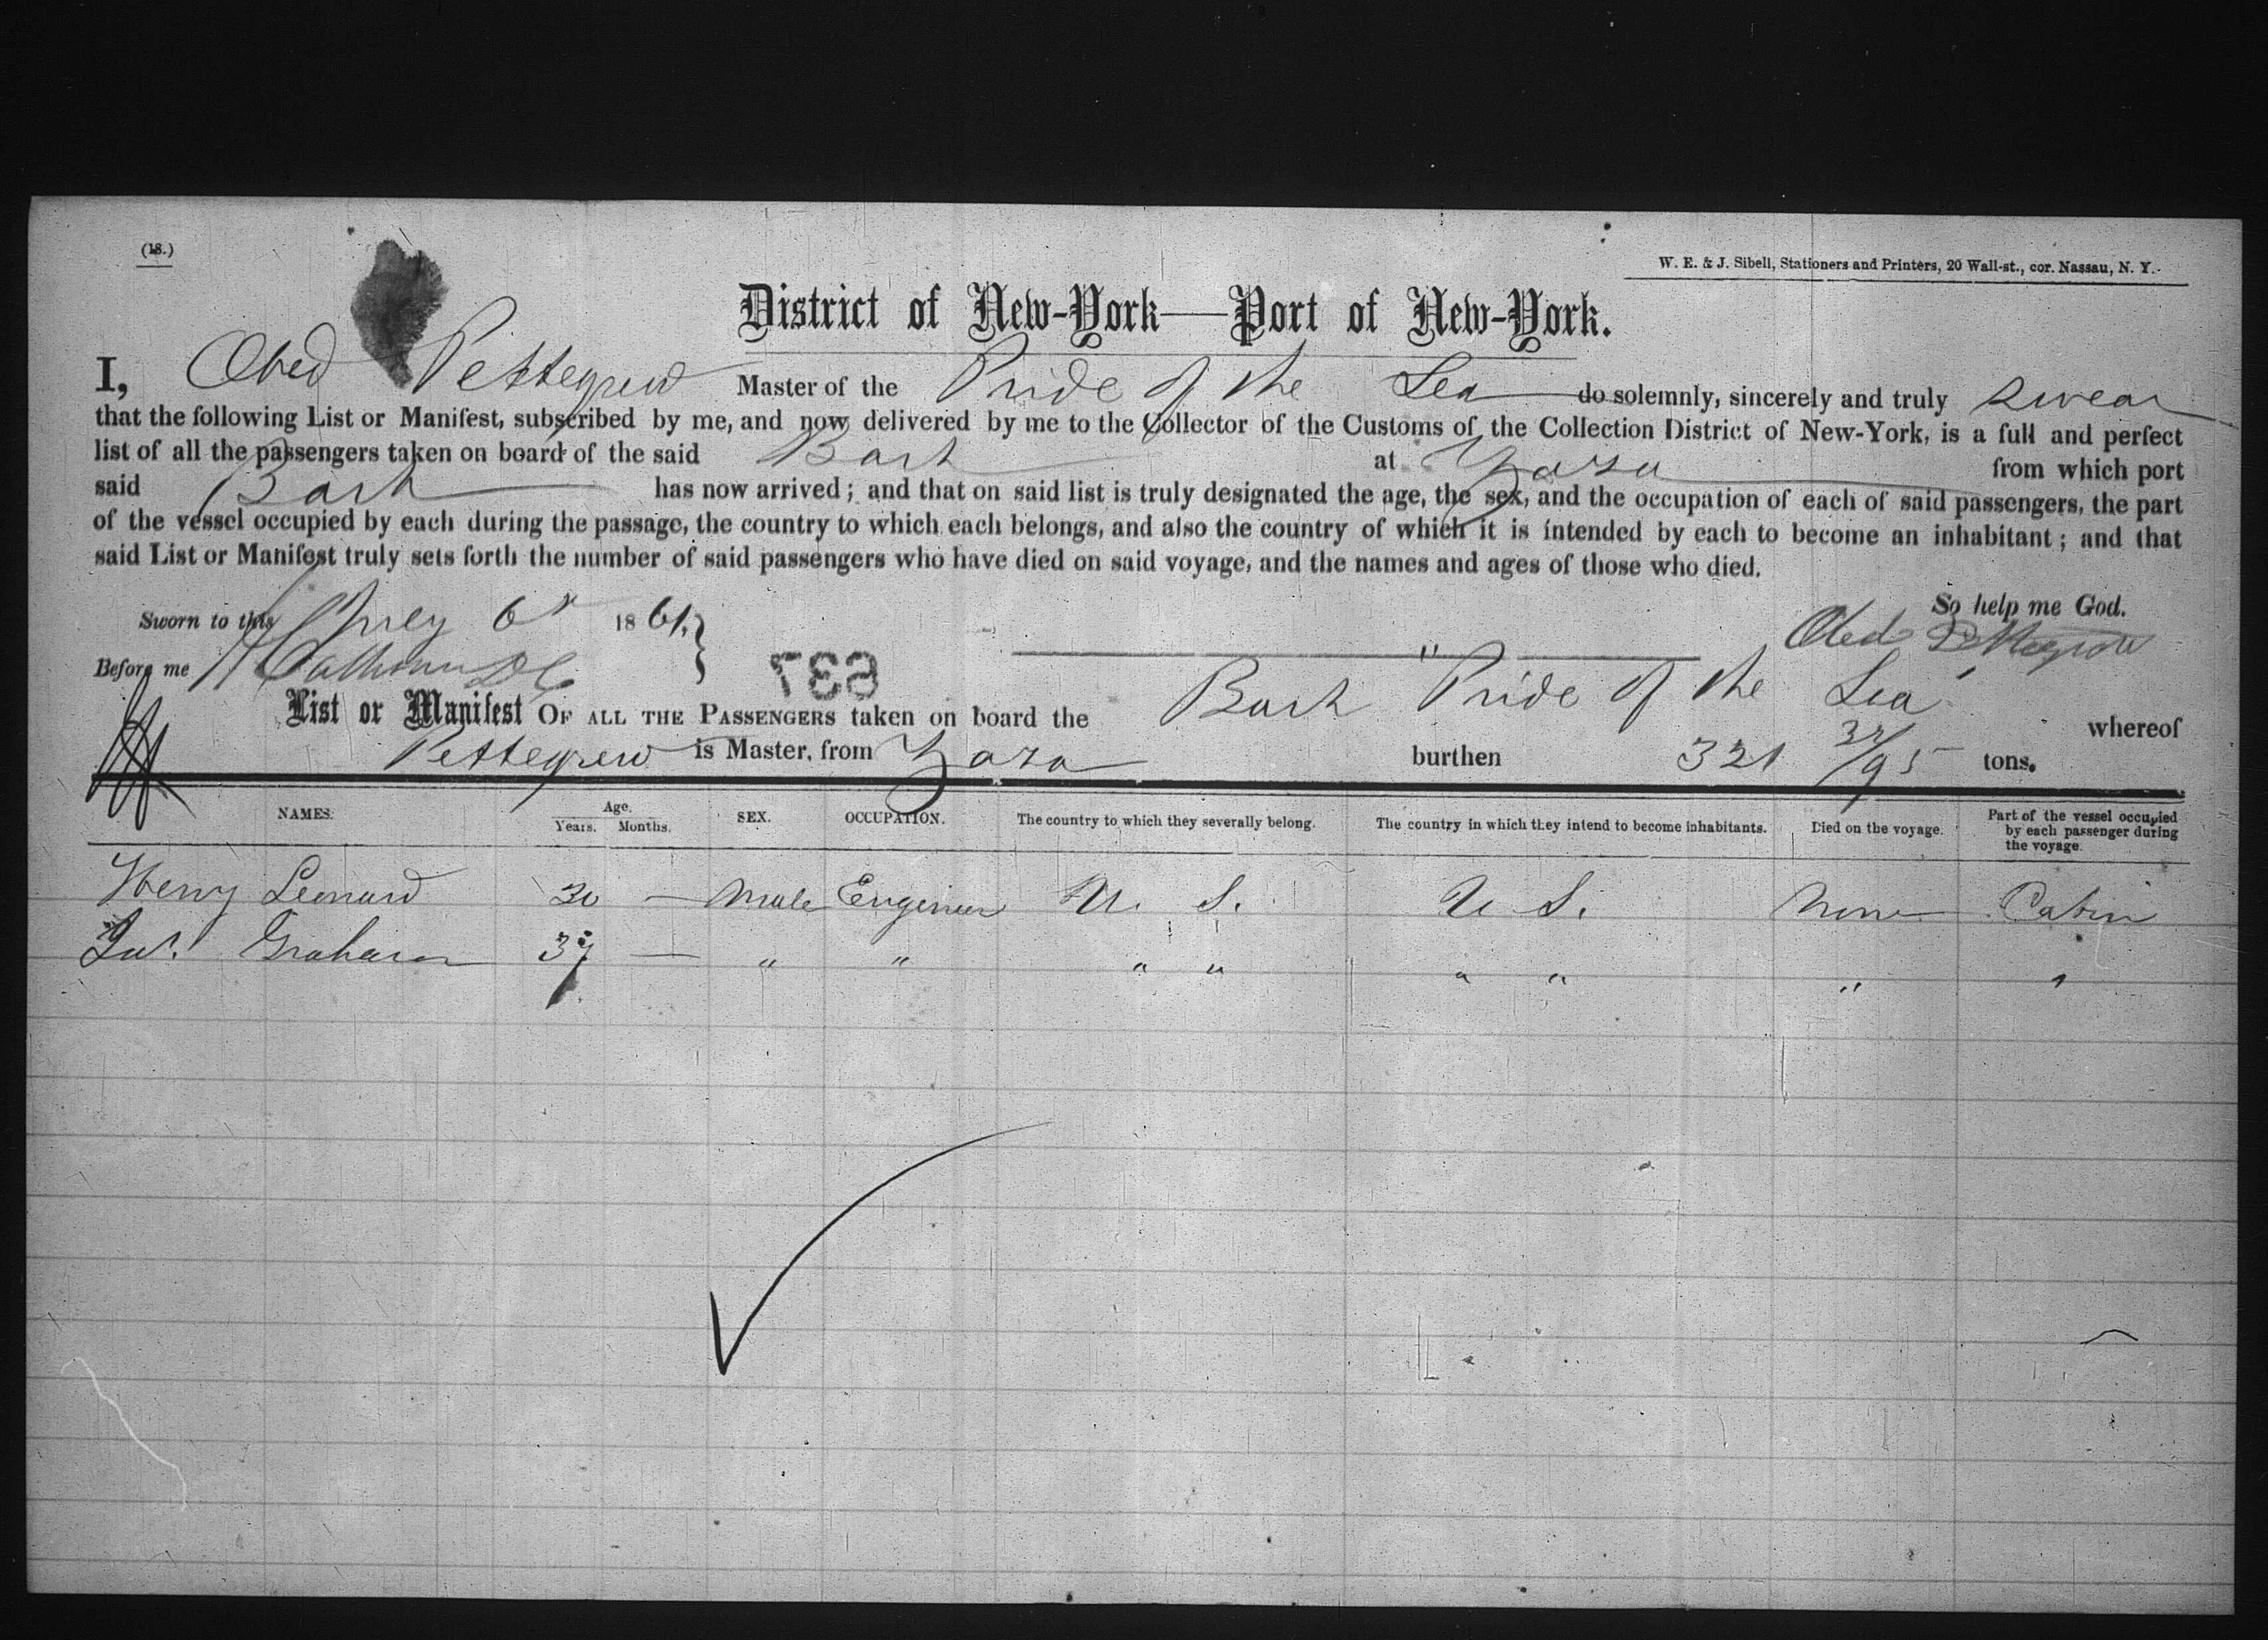 (18.)
W. E. & J. Sibell, Stationers and Printers, 20 Wall-st., cor. Nassau, N. Y.
District of New-York—Port of New-York.
I, Obed Pettegrew Master of the Pride of the Sea do solemnly, sincerely and truly swear
that the following List or Manifest, subscribed by me, and now delivered by me to the Collector of the Customs of the Collection District of New-York, is a full and perfect
list of all the passengers taken on board of the said Bark at Zaza from which port
said Bark has now arrived; and that on said list is truly designated the age, the sex, and the occupation of each of said passengers, the part
of the vessel occupied by each during the passage, the country to which each belongs, and also the country of which it is intended by each to become an inhabitant; and that
said List or Manifest truly sets forth the number of said passengers who have died on said voyage, and the names and ages of those who died.
So help me God.
Sworn to this July 6 1861.
Obed Pettegrew
Before me H Calhoun DC
637
List or Manifest OF ALL THE PASSENGERS taken on board the Bark Pride of the Sea whereof
Pettegrew is Master, from Zaza burthen 321 37/95 tons.
NAMES. Age. Years. Months. SEX. OCCUPATION. The country to which they severally belong. The country in which they intend to become inhabitants. Died on the voyage. Part of the vessel occupied by each passenger during the voyage.
Henry Leonard 30 — Male Engineer U. S. U. S. None Cabin
Jas. Graham 37 — " " " " " " " "